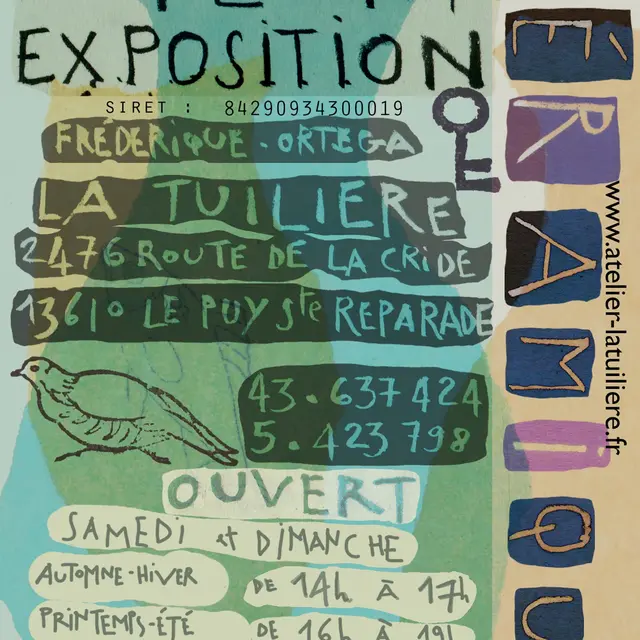 EXPOSITION
SIRET : 84290934300019
FRÉDERIQUE . ORTEGA
LA TUILIERE
2476 ROUTE DE LA CRIDE
13610 LE PUY Ste REPARADE
43.637424
5.423798
OUVERT
SAMEDI et DIMANCHE
AUTOMNE-HIVER DE 14h à 17h
PRINTEMPS-ÉTÉ DE 16h à 19h
DE
ÉRAMIQU
www.atelier-latuiliere.fr